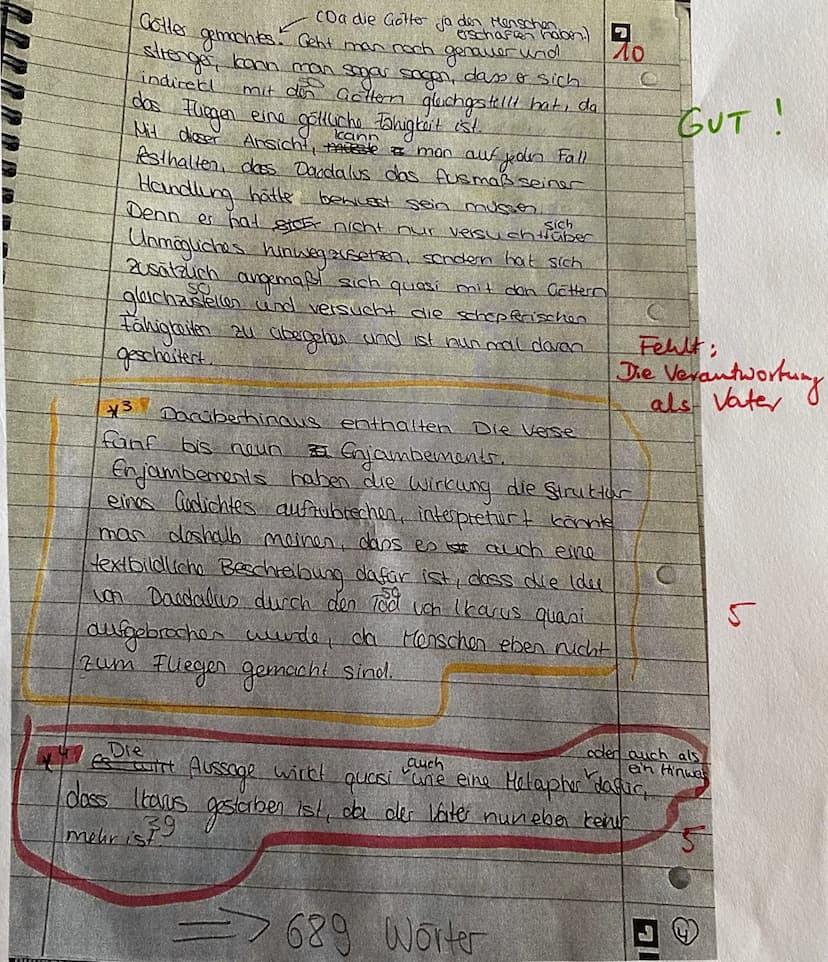 (Da die Götter ja den Menschen
erschaffen haben)
Götter gemachtes. Geht man noch genauer und
strenger, kann man sogar sagen, dass er sich
indirekt mit den Göttern gleichgstellt hat, da
das Fliegen eine göttliche Fähigkeit ist.
Mit dieser Ansicht, kann man auf jeden Fall
festhalten, dass Daedalus das Ausmaß seiner
Handlung hätte bewusst sein müssen.
Denn er hat nicht nur versucht sich über
Unmögliches hinwegzusetzen, sondern hat sich
zusätzlich angemaßt sich quasi mit den Göttern
gleichzustellen und versucht die schöpferischen
Fähigkeiten zu übergehen und ist nun mal daran
gescheitert.
10
GUT !
Fehlt:
Die Verantwortung
als Vater
*3 Darüberhinaus enthalten Die Verse
fünf bis neun Enjambements.
Enjambements haben die Wirkung die Struktur
eines Gedichtes aufzubrechen, interpretiert könnte
man deshalb meinen, dass es auch eine
textbildliche Beschreibung dafür ist, dass die Idee
von Daedalus durch den Tod von Ikarus quasi
aufgebrochen wurde, da Menschen eben nicht
zum Fliegen gemacht sind.
5
*4 Die Aussage wirkt quasi auch wie eine Metapher oder auch als
ein Hinweis
dafür,
dass Ikarus gestorben ist, da der Vater nun eben keiner
mehr ist
39
5
=> 689 Wörter
4